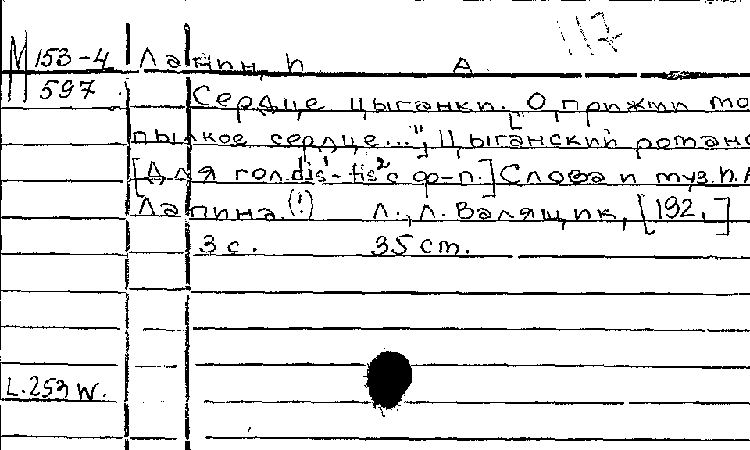 117
М 153-4 Лапин, П А.
597 Сердце цыганки. ["О, прижми мо
пылкое сердце..."]. Цыганский романс
[Для гол. dis¹-fis² с ф-п.] Слова и муз. П. А
Лапина. (!) Л., Л. Валящик, [192. ]
3 с. 35 cm.
L. 253 W.